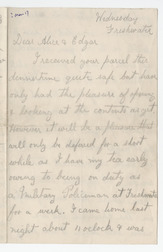 Wednesday
Freshwater
Dear Alice & Edgar
I received your parcel this
dinnertime quite safe but have
only had the pleasure of opening
& looking at the contents as yet
however it will be a pleasure that
will only be deferred for a short
while as I have my tea early
owing to being on duty as
a Military Policeman at Freshwater
for a week. I came home last
night about 11 oclock & was